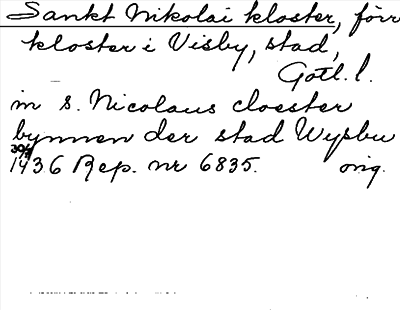 Sankt Nikolai kloster, förr
kloster i Visby, stad,
Gotl. l.
in s. Nicolaus cloester
bynnen der stad Wysbu
30/4
1436 Rep. nr 6835. orig.